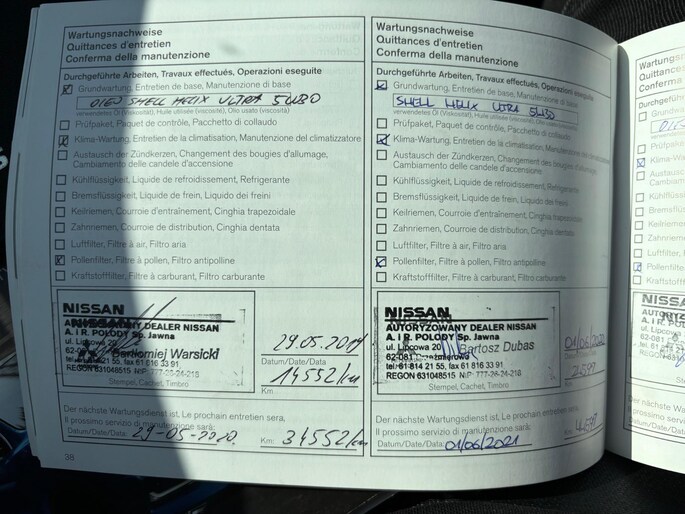 Wartungsnachweise
Quittances d'entretien
Conferma della manutenzione
Durchgeführte Arbeiten, Travaux effectués, Operazioni eseguite
Grundwartung, Entretien de base, Manutenzione di base
OLEJ SHELL HELIX ULTRA 5W30
verwendetes Öl (Viskosität), Huile utilisée (viscosité), Olio usato (viscosità)
Prüfpaket, Paquet de contrôle, Pacchetto di collaudo
Klima-Wartung, Entretien de la climatisation, Manutenzione del climatizzatore
Austausch der Zündkerzen, Changement des bougies d'allumage,
Cambiamento delle candele d'accensione
Kühlflüssigkeit, Liquide de refroidissement, Refrigerante
Bremsflüssigkeit, Liquide de frein, Liquido dei freini
Keilriemen, Courroie d'entraînement, Cinghia trapezoidale
Zahnriemen, Courroie de distribution, Cinghia dentata
Luftfilter, Filtre à air, Filtro aria
Pollenfilter, Filtre à pollen, Filtro antipolline
Kraftstofffilter, Filtre à carburant, Filtro carburante
NISSAN
AUTORYZOWANY DEALER NISSAN
A. i R. POLODY Sp. Jawna
ul. Lipcowa 20
62-081
Bartłomiej Warsicki
tel. 61 814 21 55, fax 61 816 33 91
REGON 631048515 NIP 777-26-24-218
Stempel, Cachet, Timbro
29.05.2019
Datum/Date/Data
14552 km
Km
Der nächste Wartungsdienst ist, Le prochain entretien sera,
Il prossimo servizio di manutenzione sarà:
Datum/Date/Data: 29-05-2020 Km: 34552 km
38
Wartungsnachweise
Quittances d'entretien
Conferma della manutenzione
Durchgeführte Arbeiten, Travaux effectués, Operazioni eseguite
Grundwartung, Entretien de base, Manutenzione di base
SHELL HELIX ULTRA 5W30
verwendetes Öl (Viskosität), Huile utilisée (viscosité), Olio usato (viscosità)
Prüfpaket, Paquet de contrôle, Pacchetto di collaudo
Klima-Wartung, Entretien de la climatisation, Manutenzione del climatizzatore
Austausch der Zündkerzen, Changement des bougies d'allumage,
Cambiamento delle candele d'accensione
Kühlflüssigkeit, Liquide de refroidissement, Refrigerante
Bremsflüssigkeit, Liquide de frein, Liquido dei freini
Keilriemen, Courroie d'entraînement, Cinghia trapezoidale
Zahnriemen, Courroie de distribution, Cinghia dentata
Luftfilter, Filtre à air, Filtro aria
Pollenfilter, Filtre à pollen, Filtro antipolline
Kraftstofffilter, Filtre à carburant, Filtro carburante
NISSAN
AUTORYZOWANY DEALER NISSAN
A. i R. POLODY Sp. Jawna
ul. Lipcowa 20
Bartosz Dubas
62-081
tel. 61 814 21 55, fax 61 816 33 91
REGON 631048515 NIP 777-26-24-218
Stempel, Cachet, Timbro
01/06/2020
Datum/Date/Data
Km
Der nächste Wartungsdienst ist, Le prochain entretien sera,
Il prossimo servizio di manutenzione sarà:
Datum/Date/Data: 01/06/2021 Km: